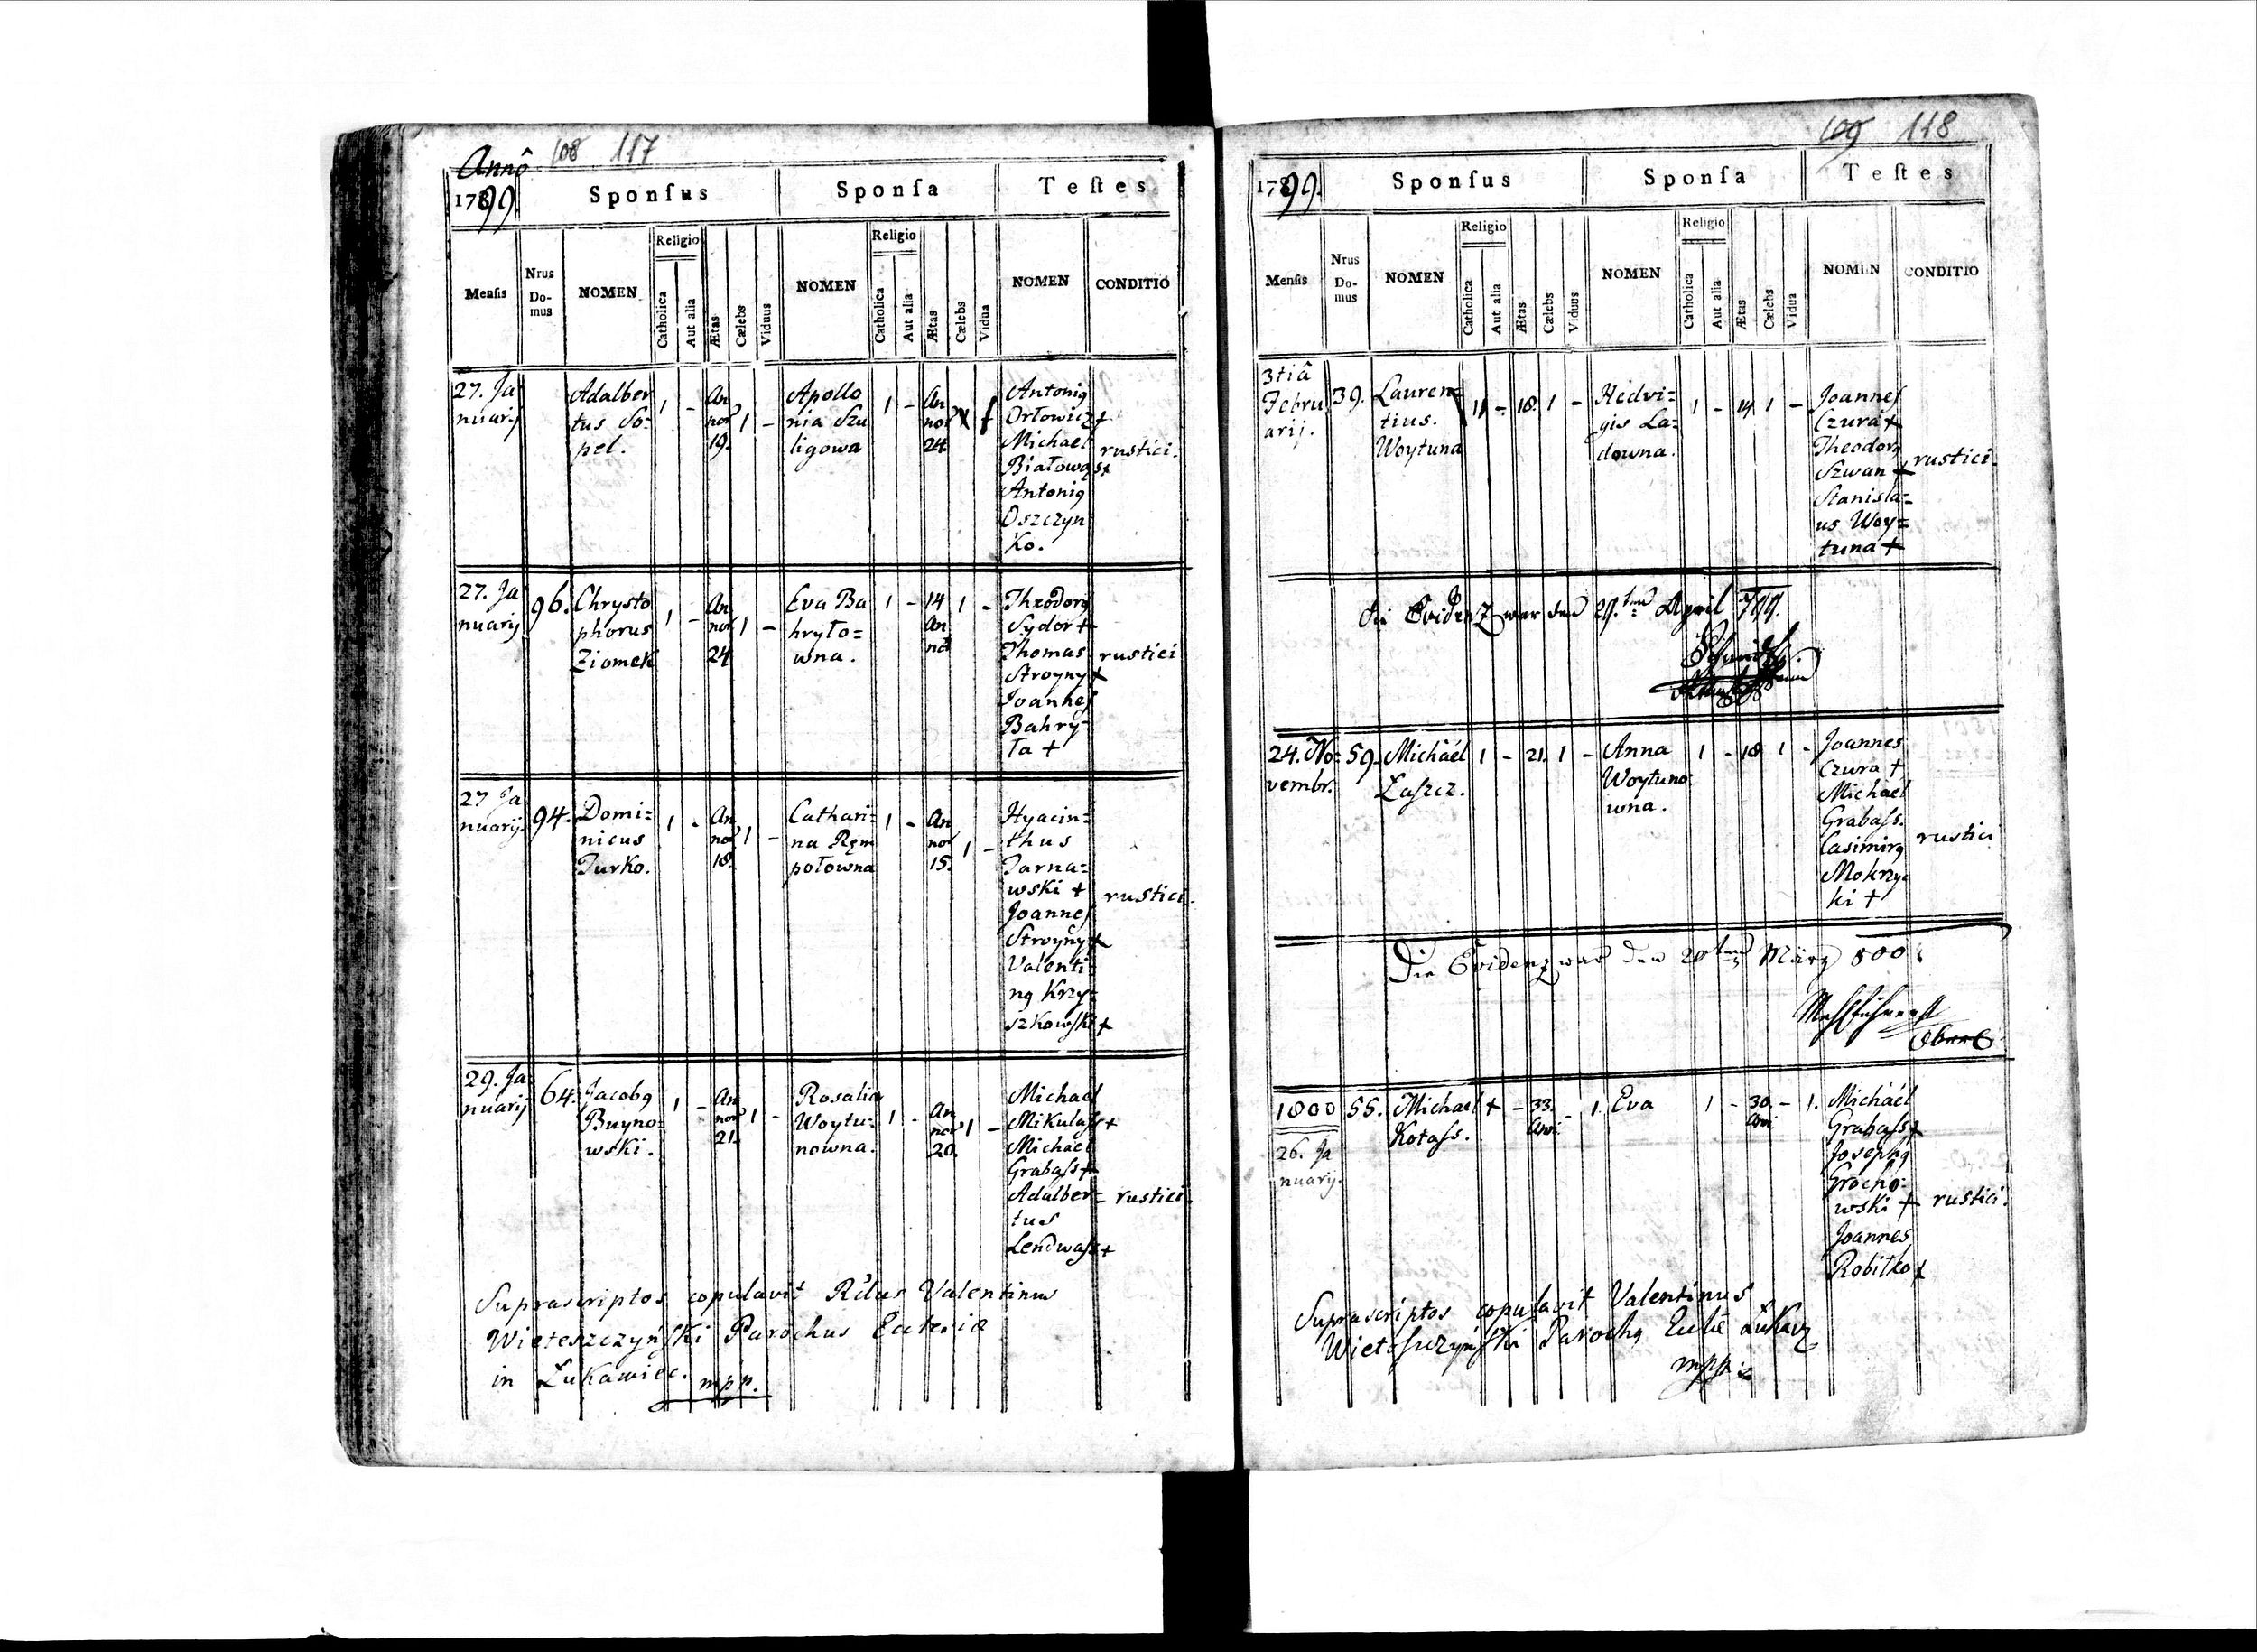 Annô 108 117
1799. Sponſus Sponſa Teſtes
Menſis Nrus Do- mus NOMEN Religio Catholica Aut alia Ætas Cælebs Viduus NOMEN Religio Catholica Aut alia Ætas Cælebs Vidua NOMEN CONDITIO
27. Ja
nuarij
Adalber
tus So=
pel.
1 -
An
nor
19.
1 -
Apollo
nia Szu
ligowa
1 -
An
nor
24.
Antonig
Orłowicz +
Michael
Białowąs +
Antonig
Oszczyn
ko.
rustici.
27. Ja
nuarij
96.
Chrysto
phorus
Ziomek
1 -
An
nor
24
1 -
Eva Ba
hryło=
wna.
1 -
14
An
nor
1 -
Theodorg
Sydor +
Thomas
Stroyny +
Joannes
Bahry=
ła +
rustici
27 Ja
nuarij
94.
Domi=
nicus
Turko.
1 -
An
nor
18.
1 -
Cathari=
na Ręm
połowna
1 -
An
nor
15.
1 -
Hyacin=
thus
Tarna=
wski +
Joannes
Stroyny +
Valenti=
ng Krzy=
szkowski +
rustici.
29. Ja
nuarij
64.
Jacobg
Buyno=
wski.
1 -
An
nor
21.
1 -
Rosalia
Woytu=
nowna.
1 -
An
nor
20.
1 -
Michael
Mikulaſs +
Michael
Grabaſs +
Adalber=
tus
Lendwaſs +
rustici.
Suprascriptos copulavit Rdus Valentinus
Wieteszczyński Parochus Ecclesiæ
in Łukawiec. mpp.
109 118
1799. Sponſus Sponſa Teſtes
Menſis Nrus Do- mus NOMEN Religio Catholica Aut alia Ætas Cælebs Viduus NOMEN Religio Catholica Aut alia Ætas Cælebs Vidua NOMEN CONDITIO
3tiâ
Febru
arij.
39.
Lauren=
tius.
Woytuna
1 - 18. 1 -
Hedvi=
gis La=
downa.
1 - 14 1 -
Joannes
Czura +
Theodorg
Szwan +
Stanisla=
us Woy=
tuna +
rustici.
die Evidenz war den 29.ten April 799.
24. No=
vembr.
59.
Michäel
Łaſzcz.
1 - 21. 1 -
Anna
Woytuno
wna.
1 - 18 1 -
Joannes
Czura +
Michäel
Grabaſs.
Casimirg
Mokrzy=
ki +
rustici
Die Evidenz war den 20ten März 800
1800
26. Ja
nuarij.
55.
Michael
Kotaſs.
+ - 33. - 1.
Eva
1 - 30. - 1.
Michäel
Grabaſs +
Josephg
Grocho=
wski +
Joannes
Robitko +
rustici.
Suprascriptos copulavit Valentinus
Wieteſzczyński Parochg Eccłæ Łukaw
mpp